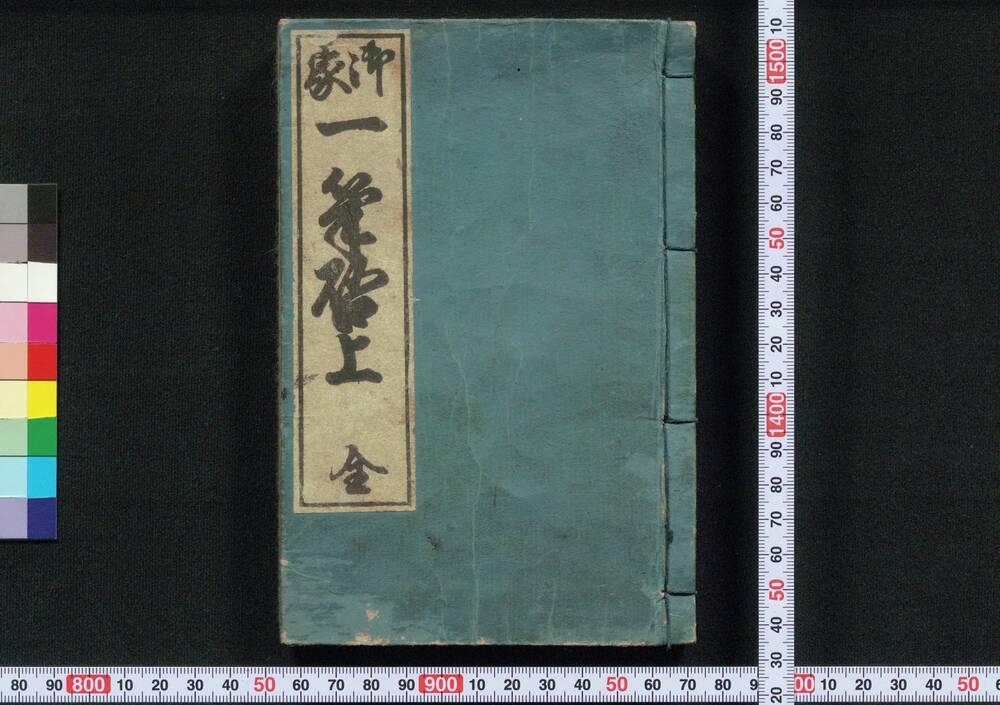 御家
一筆啓上
全
10
1500
90
80
70
60
50
40
30
20
10
1400
90
80
70
60
50
40
30
20
80 90 800 10 20 30 40 50 60 70 80 90 900 10 20 30 40 50 60 70 80 9 00 10 20 30 40 50 6